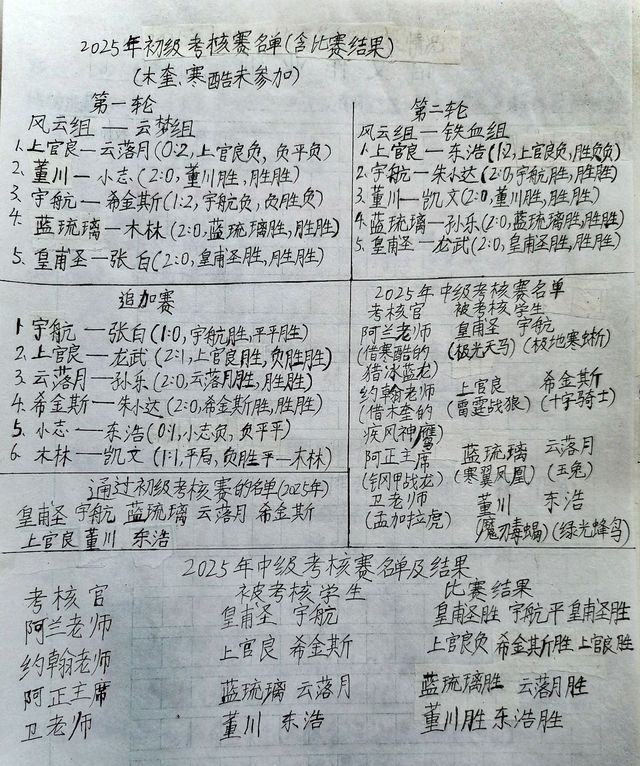 2025年初级考核赛名单(含比赛结果)
(木奎、寒酷未参加)
第一轮
风云组——云梦组
1.上官良—云落月(0:2,上官良负,负平负)
2.董川—小志(2:0,董川胜,胜胜)
3.宇航—希金斯(1:2,宇航负,负胜负)
4.蓝琉璃—木林(2:0,蓝琉璃胜,胜胜)
5.皇甫圣—张白(2:0,皇甫圣胜,胜胜)
第二轮
风云组—铁血组
1.上官良—东浩(1:2,上官良负,胜负负)
2.宇航—朱小达(2:0宇航胜,胜胜)
3.董川—凯文(2:0,董川胜,胜胜)
4.蓝琉璃—孙乐(2:0,蓝琉璃胜,胜胜)
5.皇甫圣—龙武(2:0,皇甫圣胜,胜胜)
追加赛
1.宇航—张白(1:0,宇航胜,平平胜)
2.上官良—龙武(2:1,上官良胜,负胜胜)
3.云落月—孙乐(2:0,云落月胜,胜胜)
4.希金斯—朱小达(2:0,希金斯胜,胜胜)
5.小志—东浩(0:1,小志负,负平平)
6.木林—凯文(1:1,平局,负胜平—木林)
通过初级考核赛的名单(2025年)
皇甫圣 宇航 蓝琉璃 云落月 希金斯
上官良 董川 东浩
2025年中级考核赛名单
考核官 被考核学生
阿兰老师 皇甫圣 宇航
(借寒酷的 (极光天马) (极地寒蜥)
猎冰蓝龙)
约翰老师 上官良 希金斯
(借木奎的 (雷霆战狼) (十字骑士)
疾风神鹰)
阿正主席 蓝琉璃 云落月
(钢甲战龙) (寒翼凤凰) (玉兔)
卫老师 董川 东浩
(孟加拉虎) (魔刃毒蝎) (绿光蜂鸟)
2025年中级考核赛名单及结果
考核官 被考核学生 比赛结果
阿兰老师 皇甫圣 宇航 皇甫圣胜 宇航平 皇甫圣胜
约翰老师 上官良 希金斯 上官良负 希金斯胜 上官良胜
阿正主席 蓝琉璃 云落月 蓝琉璃胜 云落月胜
卫老师 董川 东浩 董川胜 东浩胜